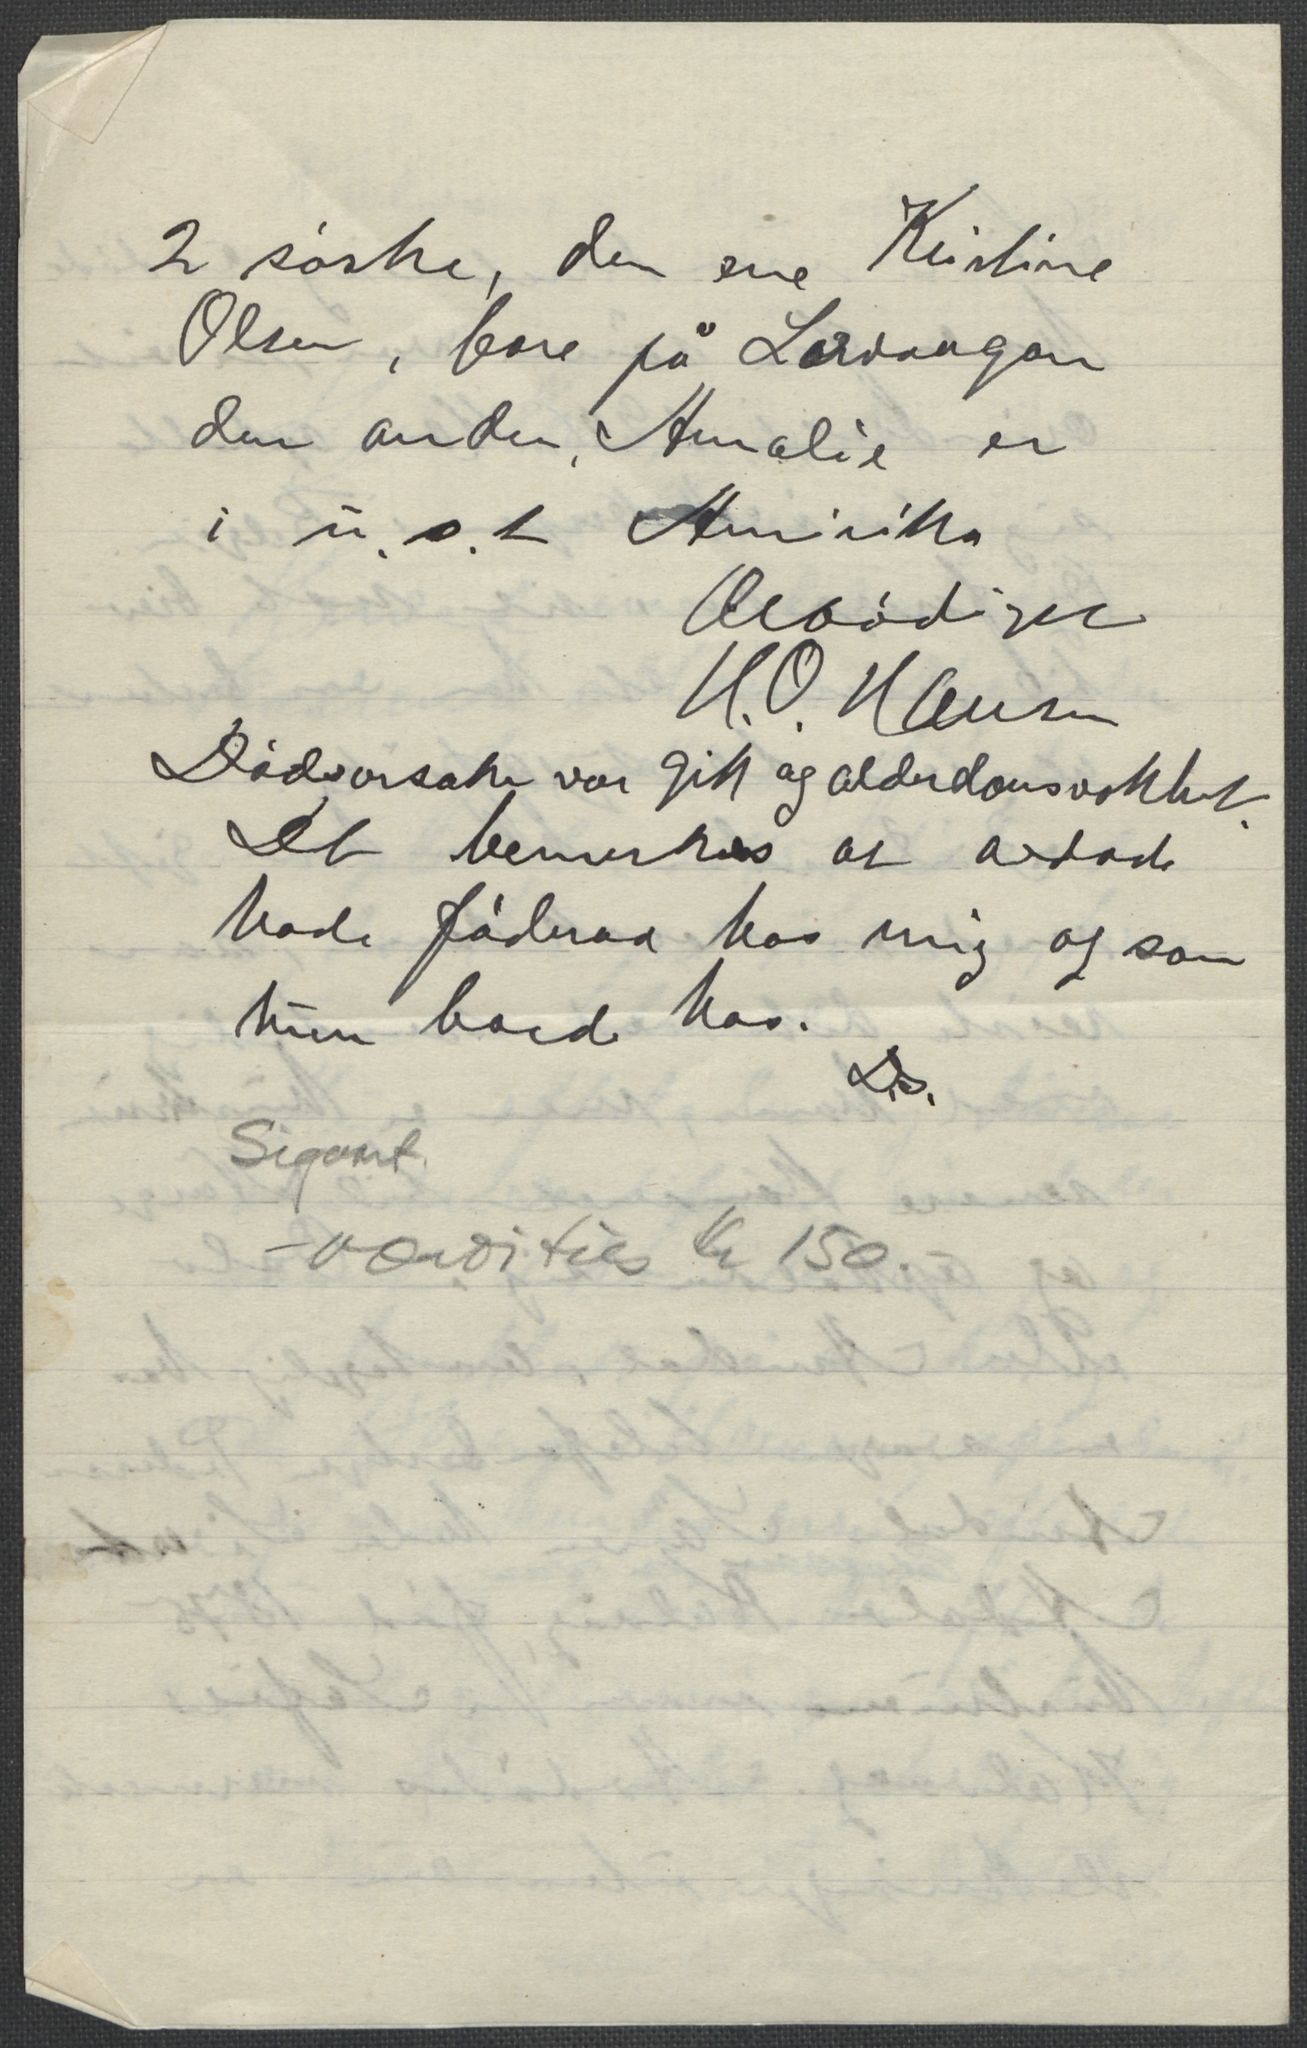 2 søstre, den ene Kristine
Olsen, bore på Lavangen
den anden, Amalie er
i u.s.t Amirika
Ærbødigst
H.O. Hansen
Dødsorsake var gikt og alderdomsvakhet.
Det bemerkes at avdøde
hade føderaa hos mig og som
hun boede hos.
D.s.
Sigvart.
- værdities kr 150.